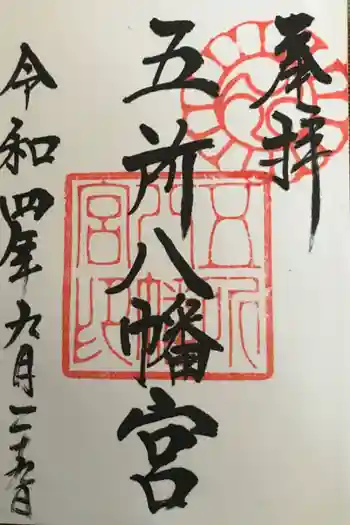 奉拝
五所八幡宮
五所八幡宮印
令和四年九月二十五日